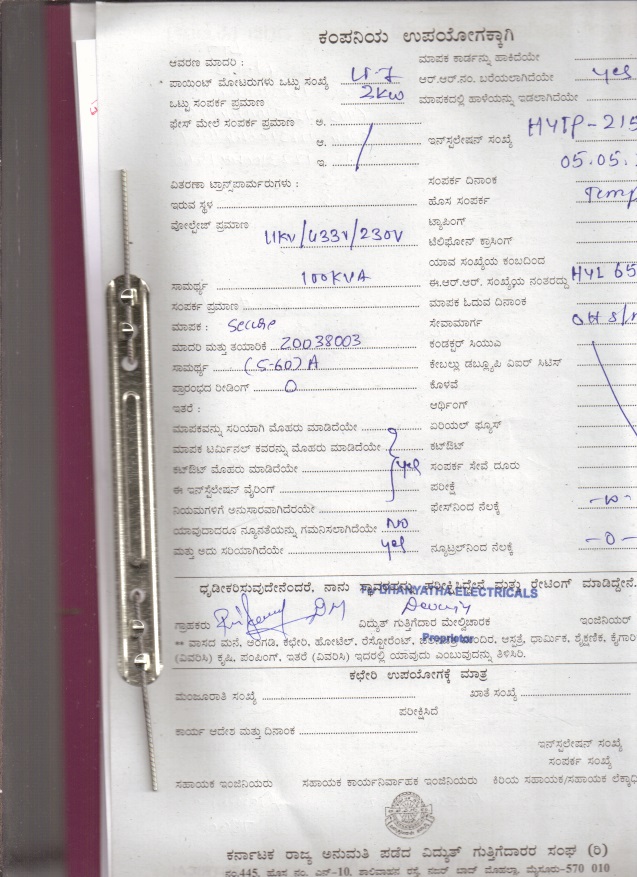 ಕಂಪನಿಯ ಉಪಯೋಗಕ್ಕಾಗಿ
ಆವರಣ ಮಾದರಿ : ಮಾಪಕ ಕಾರ್ಡನ್ನು ಹಾಕಿದೆಯೇ
ಪಾಯಿಂಟ್ ಮೋಟರುಗಳು ಒಟ್ಟು ಸಂಖ್ಯೆ LT-7 ಆರ್.ಆರ್.ನಂ. ಬರೆಯಲಾಗಿದೆಯೇ yes
ಒಟ್ಟು ಸಂಪರ್ಕ ಪ್ರಮಾಣ 2KW ಮಾಪಕದಲ್ಲಿ ಹಾಳೆಯನ್ನು ಇಡಲಾಗಿದೆಯೇ
ಫೇಸ್ ಮೇಲೆ ಸಂಪರ್ಕ ಪ್ರಮಾಣ ಅ.
ಆ. ಇನ್‌ಸ್ಟಲೇಷನ್ ಸಂಖ್ಯೆ HYTP-215
ಇ. 05.05.
ವಿತರಣಾ ಟ್ರಾನ್ಸ್‌ಫಾರ್ಮರುಗಳು : ಸಂಪರ್ಕ ದಿನಾಂಕ
ಇರುವ ಸ್ಥಳ ಹೊಸ ಸಂಪರ್ಕ Temp
ವೋಲ್ಟೇಜ್ ಪ್ರಮಾಣ 11KV/433V/230V ಟ್ಯಾಪಿಂಗ್
ಟೆಲಿಫೋನ್ ಕ್ರಾಸಿಂಗ್
ಯಾವ ಸಂಖ್ಯೆಯ ಕಂಬದಿಂದ
ಸಾಮರ್ಥ್ಯ 100KVA ಈ.ಆರ್.ಆರ್. ಸಂಖ್ಯೆಯ ನಂತರದ್ದು HYL 65
ಸಂಪರ್ಕ ಪ್ರಮಾಣ ಮಾಪಕ ಓದುವ ದಿನಾಂಕ
ಮಾಪಕ : Secure ಸೇವಾಮಾರ್ಗ OH S/
ಮಾದರಿ ಮತ್ತು ತಯಾರಿಕೆ 20038003 ಕಂಡಕ್ಟರ್ ಸಿಯುಎ
ಸಾಮರ್ಥ್ಯ (5-60) A ಕೇಬಲ್ಲು ಡಬ್ಲ್ಯೂಪಿ ವಿಐರ್ ಸಿಟಿಸ್
ಪ್ರಾರಂಭದ ರೀಡಿಂಗ್ 0 ಕೊಳವೆ
ಇತರೆ : ಆರ್ಥಿಂಗ್
ಮಾಪಕವನ್ನು ಸರಿಯಾಗಿ ಮೊಹರು ಮಾಡಿದೆಯೇ ಏರಿಯಲ್ ಫ್ಯೂಸ್
ಮಾಪಕ ಟರ್ಮಿನಲ್ ಕವರನ್ನು ಮೊಹರು ಮಾಡಿದೆಯೇ ಕಟ್‌ಔಟ್
ಕಟ್‌ಔಟ್ ಮೊಹರು ಮಾಡಿದೆಯೇ yes ಸಂಪರ್ಕ ಸೇವೆ ದೂರು
ಈ ಇನ್‌ಸ್ಟಲೇಷನ್ ವೈರಿಂಗ್ ಪರೀಕ್ಷೆ
ನಿಯಮಗಳಿಗೆ ಅನುಸಾರವಾಗಿದೆಯೇ ಫೇಸ್‌ನಿಂದ ನೆಲಕ್ಕೆ
ಯಾವುದಾದರೂ ನ್ಯೂನತೆಯನ್ನು ಗಮನಿಸಲಾಗಿದೆಯೇ NO
ಮತ್ತು ಅದು ಸರಿಯಾಗಿದೆಯೇ yes ನ್ಯೂಟ್ರಲ್‌ನಿಂದ ನೆಲಕ್ಕೆ -0-
ಧೃಡೀಕರಿಸುವುದೇನೆಂದರೆ, ನಾನು ಸ್ಥಾವರವನ್ನು ಪರೀಕ್ಷಿಸಿದ್ದೇನೆ ಮತ್ತು ರೇಟಿಂಗ್ ಮಾಡಿದ್ದೇನೆ.
DHANYATHA ELECTRICALS
ಗ್ರಾಹಕರು ವಿದ್ಯುತ್ ಗುತ್ತಿಗೆದಾರ ಮೇಲ್ವಿಚಾರಕ ಇಂಜಿನಿಯರ್
Proprietor
** ವಾಸದ ಮನೆ, ಅಂಗಡಿ, ಕಛೇರಿ, ಹೋಟೆಲ್, ರೆಸ್ಟೋರೆಂಟ್, ಆಸ್ಪತ್ರೆ, ಧಾರ್ಮಿಕ, ಶೈಕ್ಷಣಿಕ, ಕೈಗಾರಿ
(ವಿವರಿಸಿ) ಕೃಷಿ, ಪಂಪಿಂಗ್, ಇತರೆ (ವಿವರಿಸಿ) ಇದರಲ್ಲಿ ಯಾವುದು ಎಂಬುವುದನ್ನು ತಿಳಿಸಿರಿ.
ಕಛೇರಿ ಉಪಯೋಗಕ್ಕೆ ಮಾತ್ರ
ಮಂಜೂರಾತಿ ಸಂಖ್ಯೆ ಖಾತೆ ಸಂಖ್ಯೆ
ಪರೀಕ್ಷಿಸಿದೆ
ಕಾರ್ಯ ಆದೇಶ ಮತ್ತು ದಿನಾಂಕ
ಇನ್‌ಸ್ಟಲೇಷನ್ ಸಂಖ್ಯೆ
ಸಂಪರ್ಕ ಸಂಖ್ಯೆ
ಸಹಾಯಕ ಇಂಜಿನಿಯರು ಸಹಾಯಕ ಕಾರ್ಯನಿರ್ವಾಹಕ ಇಂಜಿನಿಯರು ಕಿರಿಯ ಸಹಾಯಕ/ಸಹಾಯಕ ಲೆಕ್ಕಾಧಿ
ಕರ್ನಾಟಕ ರಾಜ್ಯ ಅನುಮತಿ ಪಡೆದ ವಿದ್ಯುತ್ ಗುತ್ತಿಗೆದಾರರ ಸಂಘ (ರಿ)
ನಂ.445, ಹೊಸ ನಂ. ಎನ್-10, ಶಾಲಿವಾಹನ ರಸ್ತೆ, ನಜರ್ ಬಾದ್ ಮೊಹಲ್ಲಾ, ಮೈಸೂರು-570 010